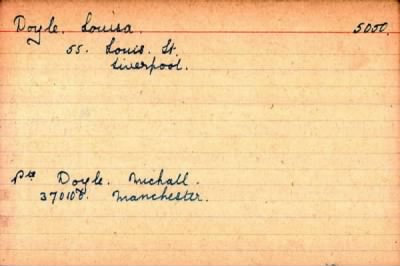 Doyle. Louisa. 5000.
55. Louis. St.
Liverpool.
Pte Doyle. Michall.
370108. Manchester.